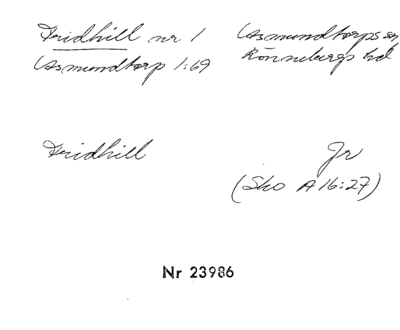 Fridhill nr 1
Asmundtorp 1:69
Asmundtorps sn,
Rönnebergs hd
Fridhill
Jr
(Sko A16:27)
Nr 23986